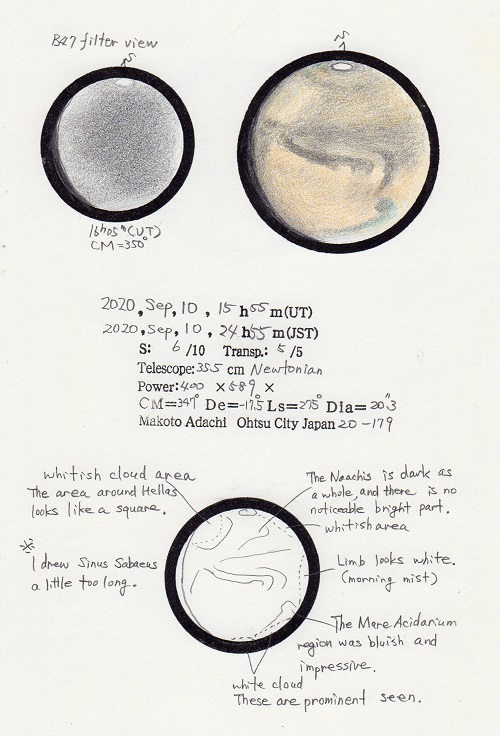 B47 filter view
S
S
16h05m(UT)
CM=350°
2020, Sep, 10, 15h55m(UT)
2020, Sep, 10, 24h55m(JST)
S: 6/10 Transp.: 5/5
Telescope: 355 cm Newtonian
Power: 400 ×589 ×
CM=347° De=-17.5° Ls=275° Dia=20"3
Makoto Adachi Ohtsu City Japan 20-179
whitish cloud area
The area around Hellas
looks like a square.
The Noachis is dark as
a whole, and there is no
noticeable bright part.
whitish area
※
I drew Sinus Sabaeus
a little too long.
Limb looks white.
(morning mist)
The Mare Acidarium
region was bluish and
impressive.
white cloud
These are prominent seen.